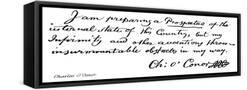 I am preparing a Prospectus of the
internal state of the Country, but my
Infirmity and other avocations throw
insurmountable obstacles in my way.
Ch: O'Conor
Charles O'Conor